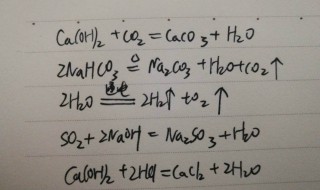 Ca(OH)₂ + CO₂ = CaCO₃ + H₂O
2NaHCO₃ ≜ Na₂CO₃ + H₂O + CO₂↑
2H₂O == 2H₂↑ + O₂↑
SO₂ + 2NaOH = Na₂SO₃ + H₂O
Ca(OH)₂ + 2HCl = CaCl₂ + 2H₂O